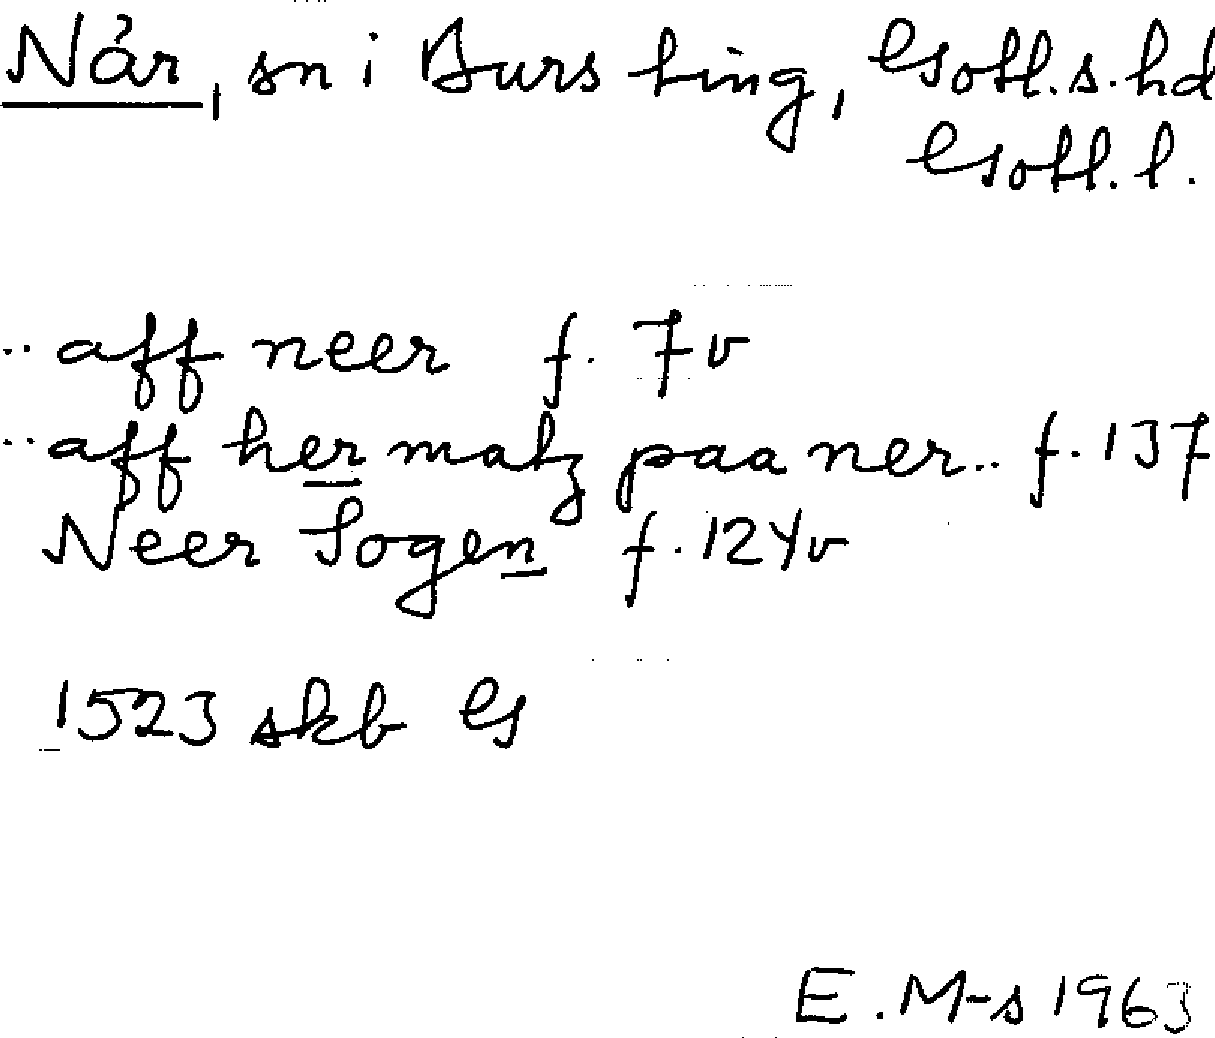 När, sn i Burs ting, Gotl. s. hd
Gotl. l.
.. aff neer f. 7v
.. aff her matz paa ner .. f. 137
Neer Sogen f. 124v
1523 skb G
E. M-s 1963